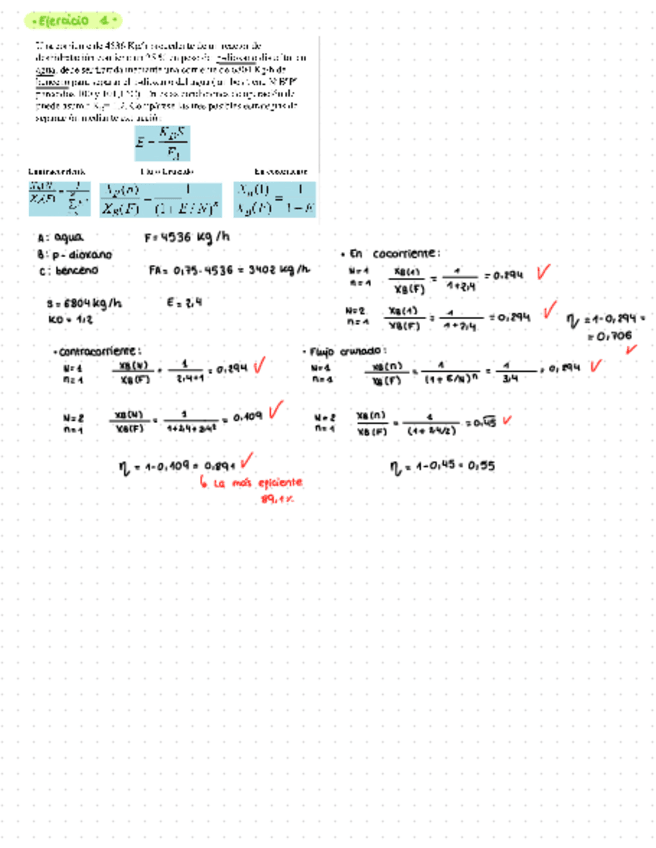 • Ejercicio 1 •
Una corriente de 4536 Kg/h procedente de un reactor de
deshidratación contiene un 25% en peso de p-dioxano disuelto en
agua, debe ser tratada mediante una corriente de 6804 Kg/h de
benceno para separar el p-dioxano del agua
separación mediante extracción:
E = K_D S / F_A
Contracorriente Flujo Cruzado En cocorriente
X_B(n) / X_B(F) = 1 / (1 + E/N)^n
X_B(1) / X_B(F) = 1 / 1 - E
A: agua F = 4536 kg/h
B: p-dioxano
C: benceno FA = 0,75 · 4536 = 3402 kg/h
S = 6804 kg/h E = 2,4
KD = 1,2
• En cocorriente:
N=1 n=1 XB(1) / XB(F) = 1 / 1+2,4 = 0,294 ✓
N=2 n=1 XB(1) / XB(F) = 1 / 1+2,4 = 0,294 ✓ η = 1-0,294 =
= 0,706 ✓
• contracorriente:
N=1 n=1 XB(N) / XB(F) = 1 / 2,4+1 = 0,294 ✓
N=2 n=1 XB(N) / XB(F) = 1 / 1+2,4+2,4² = 0,109 ✓
η = 1-0,109 = 0,891 ✓
↳ La más eficiente
89,1%
• Flujo cruzado:
N=1 n=1 XB(n) / XB(F) = 1 / (1+E/N)^n = 1 / 3,4 = 0,294 ✓
N=2 n=1 XB(n) / XB(F) = 1 / (1+2,4/2) = 0,45 ✓
η = 1-0,45 = 0,55